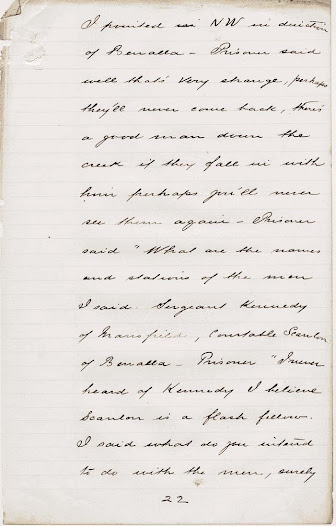 I pointed in NW in direction
of Benalla - Prisoner said
well that's very strange, perhaps
they'll never come back, there's
a good man down the
creek if they fall in with
him perhaps you'll never
see them again - Prisoner
said "What are the names
and stations of the men
I said. Sergeant Kennedy
of Mansfield, Constable Scanlon
of Benalla - Prisoner "I never
heard of Kennedy I believe
Scanlon is a flash fellow.
I said what do you intend
to do with the men, surely
22